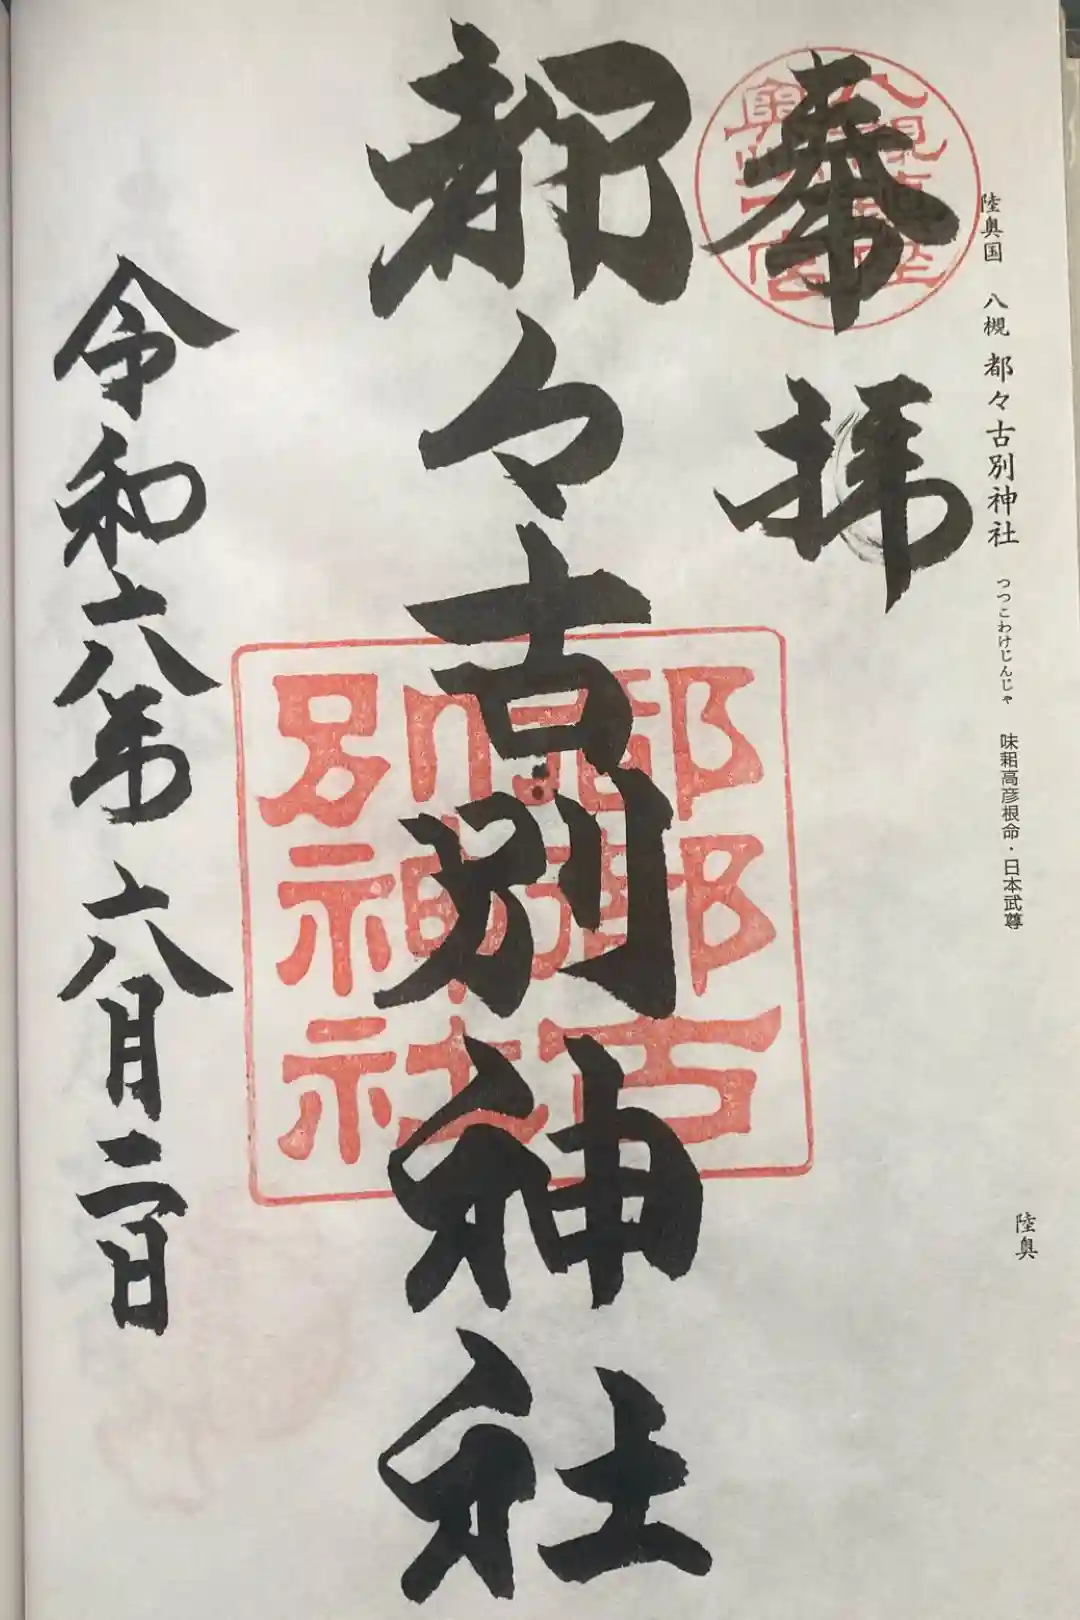 陸奥国 八槻 都々古別神社 つつこわけじんじゃ 味耜高彦根命・日本武尊
陸奥
奉拝
都々古別神社
令和六年六月二日
都都古
別神社